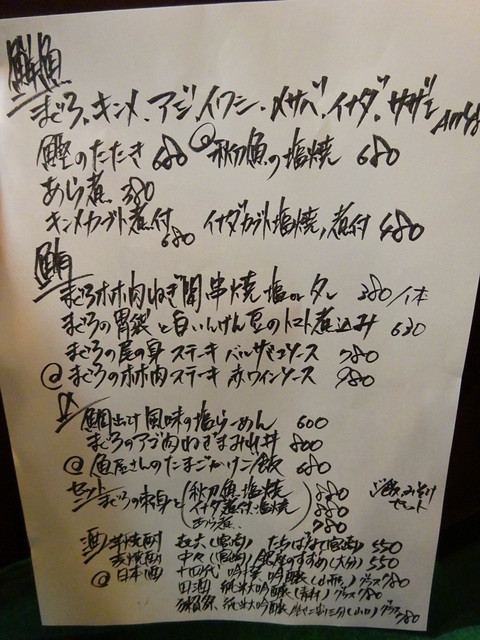 鮮魚
まぐろ、キンメ、アジ、イワシ、〆サバ、イナダ、サザエ
鰹のたたき 680 @秋刀魚の塩焼 680
あら煮 380
キンメカブト煮付 680 イナダカブト塩焼, 煮付 480
鮪
まぐろホホ肉ねぎ間串焼 塩orタレ 380/1本
まぐろの胃袋と白いんげん豆のトマト煮込み 630
まぐろの尾の身ステーキ バルサミコソース 780
@まぐろのホホ肉ステーキ 赤ワインソース 980
鯛出汁風味の塩らーめん 600
まぐろのアゴ肉ねぎまみれ丼 800
@魚屋さんのたまごかけご飯 680
セット まぐろの刺身と(秋刀魚塩焼 880
イナダ煮付, 塩焼 880
あら煮 780
ご飯, みそ汁
セット
酒 芋焼酎 (宮崎) たちばな(宮崎) 550
麦焼酎 中々(宮崎) 銀座のすずめ(大分) 550
@日本酒 十四代 吟撰 吟醸(山形) グラス780
田酒 純米大吟醸(青森) グラス780
獺祭 純米大吟醸 (山口) グラス780